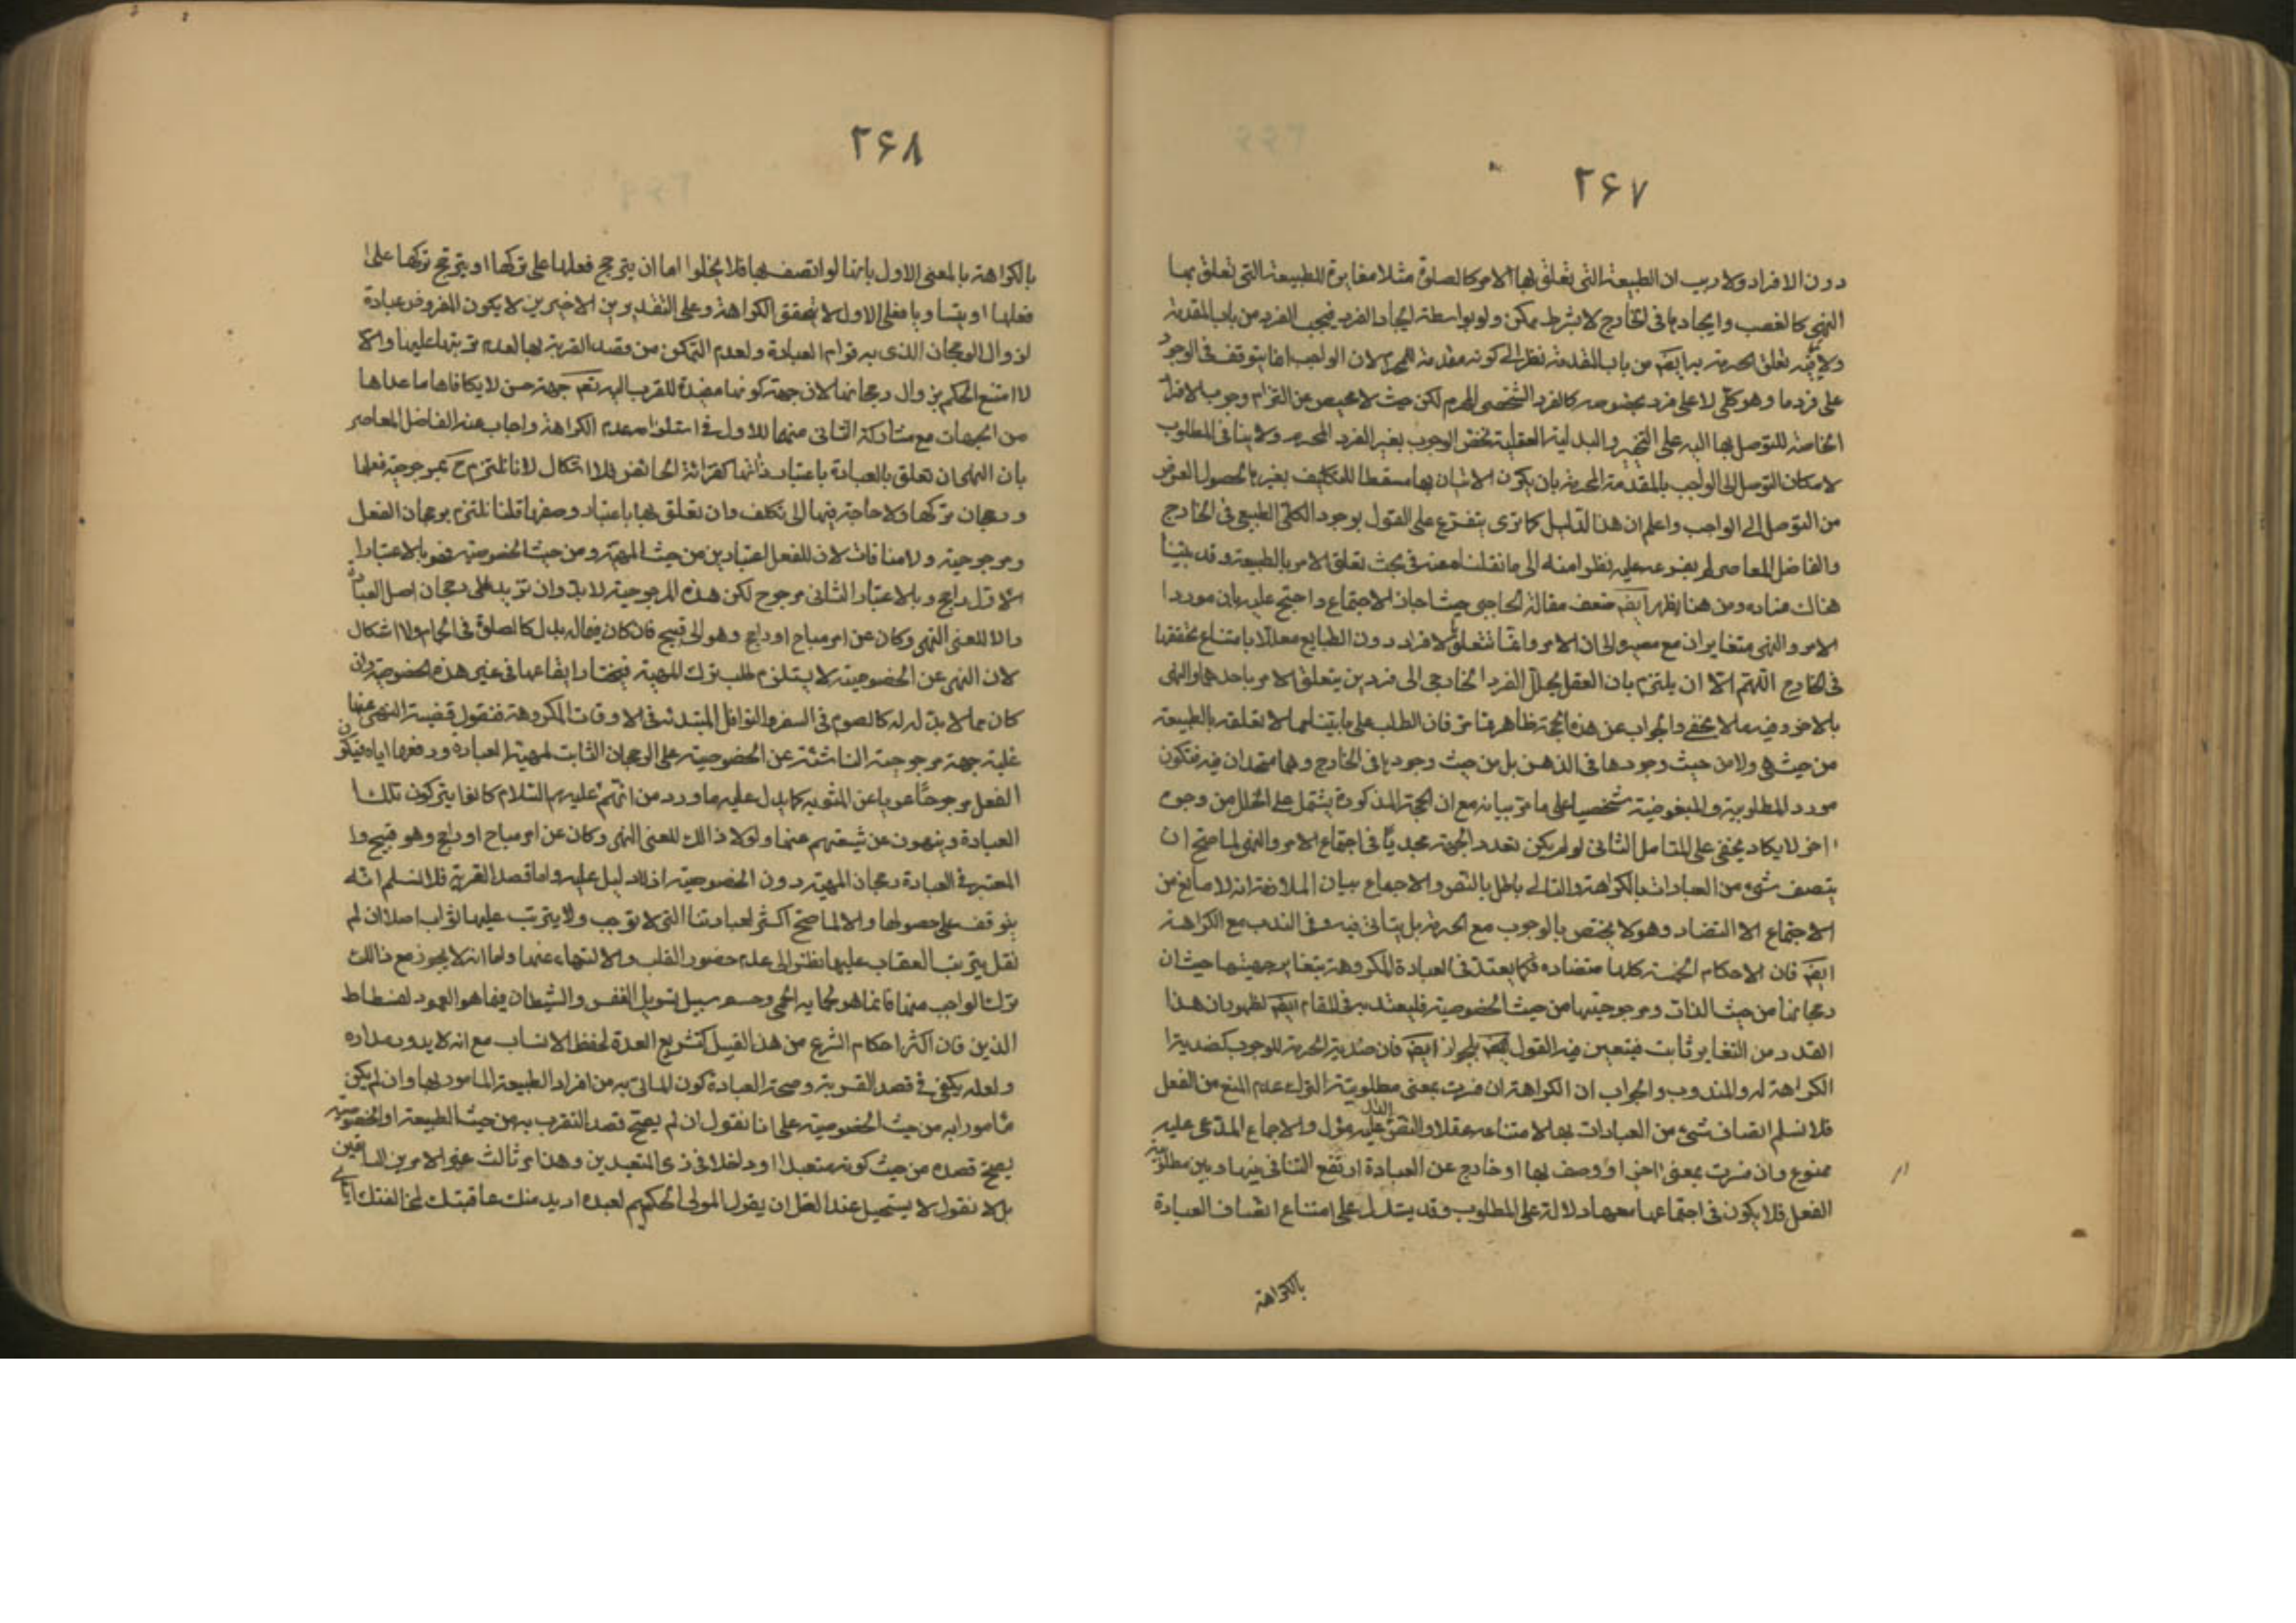 ۲۶۷
دون الافراد ولا ريب ان الطبيعة التى تعلق بها الامر كالصلوة مثلا مغايرة للطبيعة التى تعلق بها
النهى كالغصب وايجادها فى الخارج لا بشرط ممكن ولو بواسطة ايجاد الفرد فيجب الفرد من باب المقدمة
ولا تعلق الحرمة به ايضا من باب المقدمة نظرا الى كونه مقدمة للمحرم لان الواجب انما يتوقف فى الوجود
على فرد ما وهو كلى لا على فرد بخصوصه كالفرد الشخصى المحرم لكن حيث لا محيص عن التزام وجوب الافراد
الخاصة للتوصل بها اليه على التخيير والبدلية العقلية تخص الوجوب بغير الفرد المحرم ولا ينافى المطلوب
لامكان التوصل الى الواجب بالمقدمة المحرمة بان يكون الاتيان بها مسقطا للتكليف بغيرها لحصول الغرض
من التوصل الى الواجب واعلم ان هذا الدليل كما ترى يتفرع على القول بوجود الكلى الطبيعى فى الخارج
والفاضل المعاصر لم يفرعه عليه نظرا منه الى ما نقلناه عنه فى بحث تعلق الامر بالطبيعة وقد بينا
هناك فساده ومن هنا يظهر ايضا ضعف مقالة الحاجبى حيث اجاز الاجتماع واحتج عليه بان موردا
الامر والنهى متغايران مع مصيره الى ان الاوامر انما تتعلق بالافراد دون الطبايع معللا بامتناع تحققها
فى الخارج اللهم الا ان يلتزم بان العقل يحلل الفرد الخارجى الى فردين يتعلق الامر باحدهما والنهى
بالاخر وفيه ما لا يخفى والجواب عن هذه الحجة ظاهر مما مر فان الطلب على ما بيناه مما لا تعلق له بالطبيعة
من حيث هى ولا من حيث وجودها فى الذهن بل من حيث وجودها فى الخارج وهما متحدان فيه فتكون
مورد المطلوبية والمبغوضية شخصيا على ما مر بيانه مع ان الحجة المذكورة يشتمل على الخلل من وجوه
اخر لا يكاد يخفى على المتامل الثانى لو لم يكن تعدد الجهة مجديا فى اجتماع الامر والنهى لما صح ان
يتصف شىء من العبادات بالكراهة والتالى باطل بالنص والاجماع بيان الملازمة انه لا مانع من
الاجتماع الا التضاد وهو لا يختص بالوجوب مع الحرمة بل يتاتى فيه وفى الندب مع الكراهة
ايضا فان الاحكام الخمسة كلها متضاده فكما يعتد فى العبادة المكروهة بتغاير جهيتها حيث ان
رجحانها من حيث الذات ومرجوحيتها من حيث الخصوصية فليعتد به فى المقام ايضا لظهور ان هذا
القدر من التغاير ثابت فيتعين فيه القول بالجواز ايضا فان ضدية الحرمة للوجوب كضدية
الكراهة له والمندوب والجواب ان الكراهة ان فسرت بمعنى مطلوبية الترك مع عدم المنع من الفعل
فلا نسلم اتصاف شىء من العبادات بها لامتناعه عقلا والنقض الدال عليه مؤل والاجماع المدعى عليه
ممنوع وان فسرت بمعنى اخر او وصف بها او خارج عن العبادة ارتفع التنافى بينها وبين مطلوبية
الفعل فلا يكون فى اجتماعها معها دلالة على المطلوب وقد يستدل على امتناع اتصاف العبادة
بالكراهة
۲۶۸
بالكراهة بالمعنى الاول بانها لو اتصف بها فلا يخلوا اما ان يترجح فعلها على تركها او يترجح تركها على
فعلها او يتساويا فعلى الاول لا يتحقق الكراهة وعلى التقديرين الاخيرين لا يكون المفروض عبادة
لزوال الرجحان الذى به قوام العبادة ولعدم التمكن من قصد القربة بها لعدم ترتبها عليها والا
لامتنع الحكم بزوال رجحانها لان جهة كونها مفيدة للقرب اليه تعم جهة حسن لا يكافاها ما عداها
من الجهات مع مشاركة الثانى منهما للاول فى استلزامه عدم الكراهة واجاب عنه الفاضل المعاصر
بان النهى ان تعلق بالعبادة باعتبار ذاتها كقرائة الحائض فلا اشكال لانا نلتزم ح بمرجوحية فعلها
ورجحان تركها ولا حاجة فيها الى تكلف وان تعلق بها باعتبار وصفها قلنا نلتزم برجحان الفعل
ومرجوحيته ولا منافات لان للفعل اعتبارين من حيث المهية ومن حيث الخصوصية فهو بالاعتبار
الاول راجح وبالاعتبار الثانى مرجوح لكن هذه المرجوحية لا بد وان تزيد على رجحان اصل العبادة
والا للغى النهى وكان عن امر مباح او راجح وهو الى قبيح فان كان فيما له بدل كالصلوة فى الحمام ولا اشكال
لان النهى عن الخصوصية لا يستلزم طلب ترك المهية فيختار ايقاعها فى غير هذه الخصوصية وان
كان مما لا بدل له كالصوم فى السفر والنوافل المبتدئة فى الاوقات المكروهة فنقول قضية النهى عنها
غلبة جهة مرجوحية الناشئة عن الخصوصية على الرجحان الثابت لمهية العبادة ورفعها اياه فيكون
الفعل مرجوحا عريا عن المثوبة كما يدل عليه ما ورد من انهم عليهم السلام كانوا يتركون تلك
العبادة وينهون عن شيعتهم عنها ولولا ذالك للغى النهى وكان عن امر مباح او راجح وهو قبيح وا
المعتبر فى العبادة رجحان المهية دون الخصوصية اذ لا دليل عليه واما قصد القربة فلا نسلم انه
يتوقف على حصولها والا لما صح اكثر عباداتنا التى لا توجب ولا يترتب عليها ثواب اصلا ان لم
نقل يترتب العقاب عليها نظرا الى عدم حضور القلب والالتهاء عنها واما انه لا يجوز مع ذالك
ترك الواجب منها فانما هو لحماية الحمى وحسم سبيل تسويل النفس والشيطان فيما هو العمود لفسطاط
الدين فان اكثر احكام الشرع من هذا القبيل كتشريع العدة لحفظ الانساب مع انه لا يدور مداره
ولعله يكفى فى قصد القربة وصحة العبادة كون الماتى به من افراد الطبيعة المامور بها وان لم يكن
مامورا به من حيث الخصوصية على انا نقول ان لم يصح قصد التقرب به من حيث الطبيعة او الخصوصية
يصح قصده من حيث كونه متعبدا او داخلا فى ذى المتعبدين وهذا امر ثالث غير الامرين السابقين
بل لا نقول لا يستحيل عند العقل ان يقول المولى الحكيم لعبده اريد منك عاقبتك لمخالفتك اياى